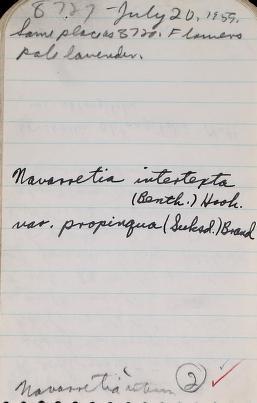 8727 - July 20, 1959.
Same place as 8720. Flowers
pale lavender.
Navarretia intertexta
(Benth.) Hook.
var. propinqua (Suksd.) Brand
Navarretia 2